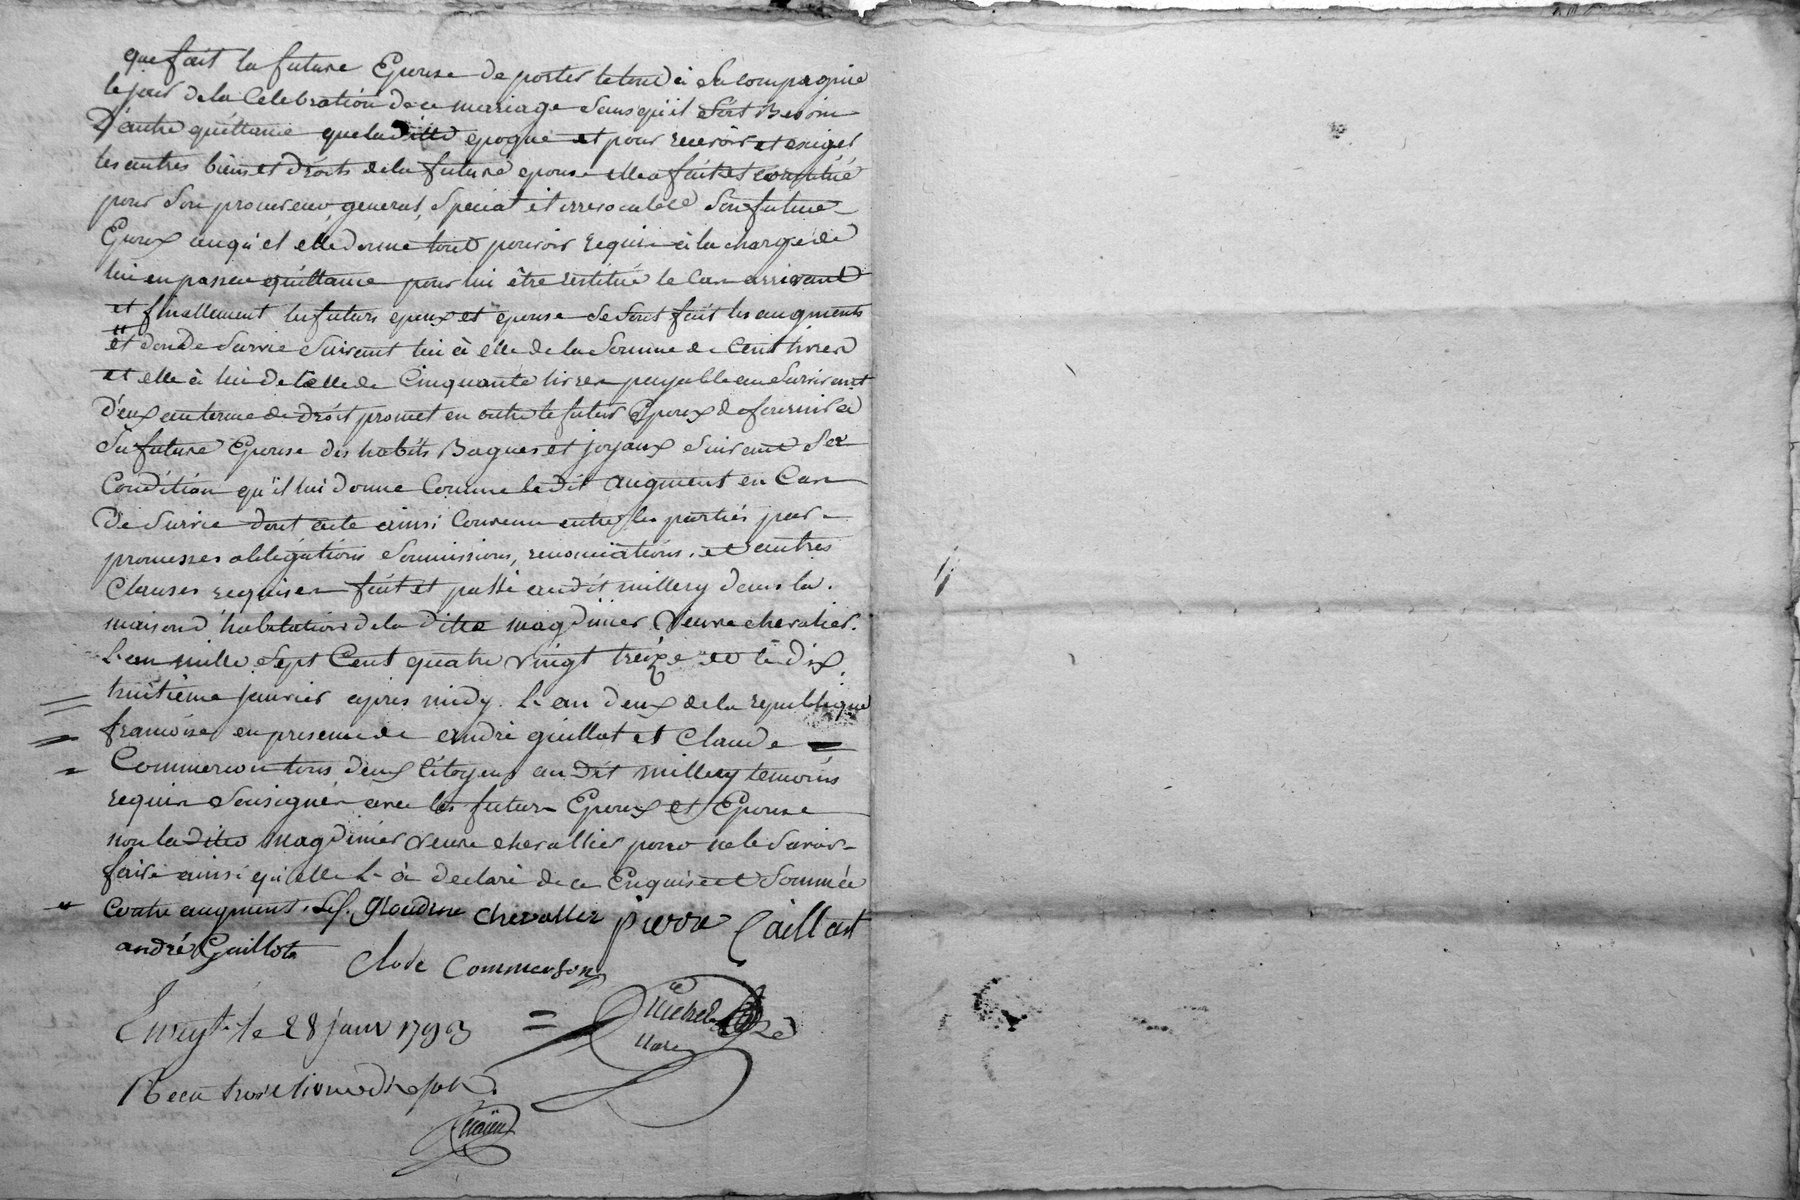 que fait la future Epouse de porter le tout à sa compagnie
le jour de la Celebration de ce mariage sans qu'il soit Besoin
D'autre quittance que la ditte epoque et pour recevoir et exiger
les autres biens et droits de la future epouse elle a fait et constitué
pour Son procureur general, Special et irrevocable Son future
Epoux auquel elle donne tout pouvoir requis à la charge de
lui en passer quittance pour lui être restitué le Cas arrivant
et finallement les futurs epoux et epouse se sont fait les augments
" et don de Survie Suivant lui à elle de la Somme de Cent livres
et elle à lui de Celle de Cinquante livres payable au Survivant
d'eux au terme de droit promet en outre le futur Epoux de fournir a
Sa future Epouse des habits Bagues et joyaux Suivant Sa
Condition qu'il lui donne Comme le dit augment en Cas
De Survie dont acte ainsi Convenu entre les parties par
promesses obligations Soumissions, renonciations, et autres
Clauses requises fait et passé au dit millery dans la
maison d'habitation de la ditte magdinier Veuve chevalier.
L'an mille Sept Cent quatre vingt treize et le dix
huitième janvier après midy. L'an deux de la republique
francoise en presence de andré guillot et Claude =
Commercon tous deux Citoyens au dit millery temoins
requis Sousignés avec les futurs Epoux et Epouse
non la ditte magdinier veuve chevallier pour ne le Savoir
faire ainsi qu'elle L'a declaré de ce Enquise et Sommée
" contre augment. glaudine chevallier pierre Caillat
andré Guillot
Clode Commerson
Enregt. le 28 janv 1793 =
Michel
Recu trois livres dix sols